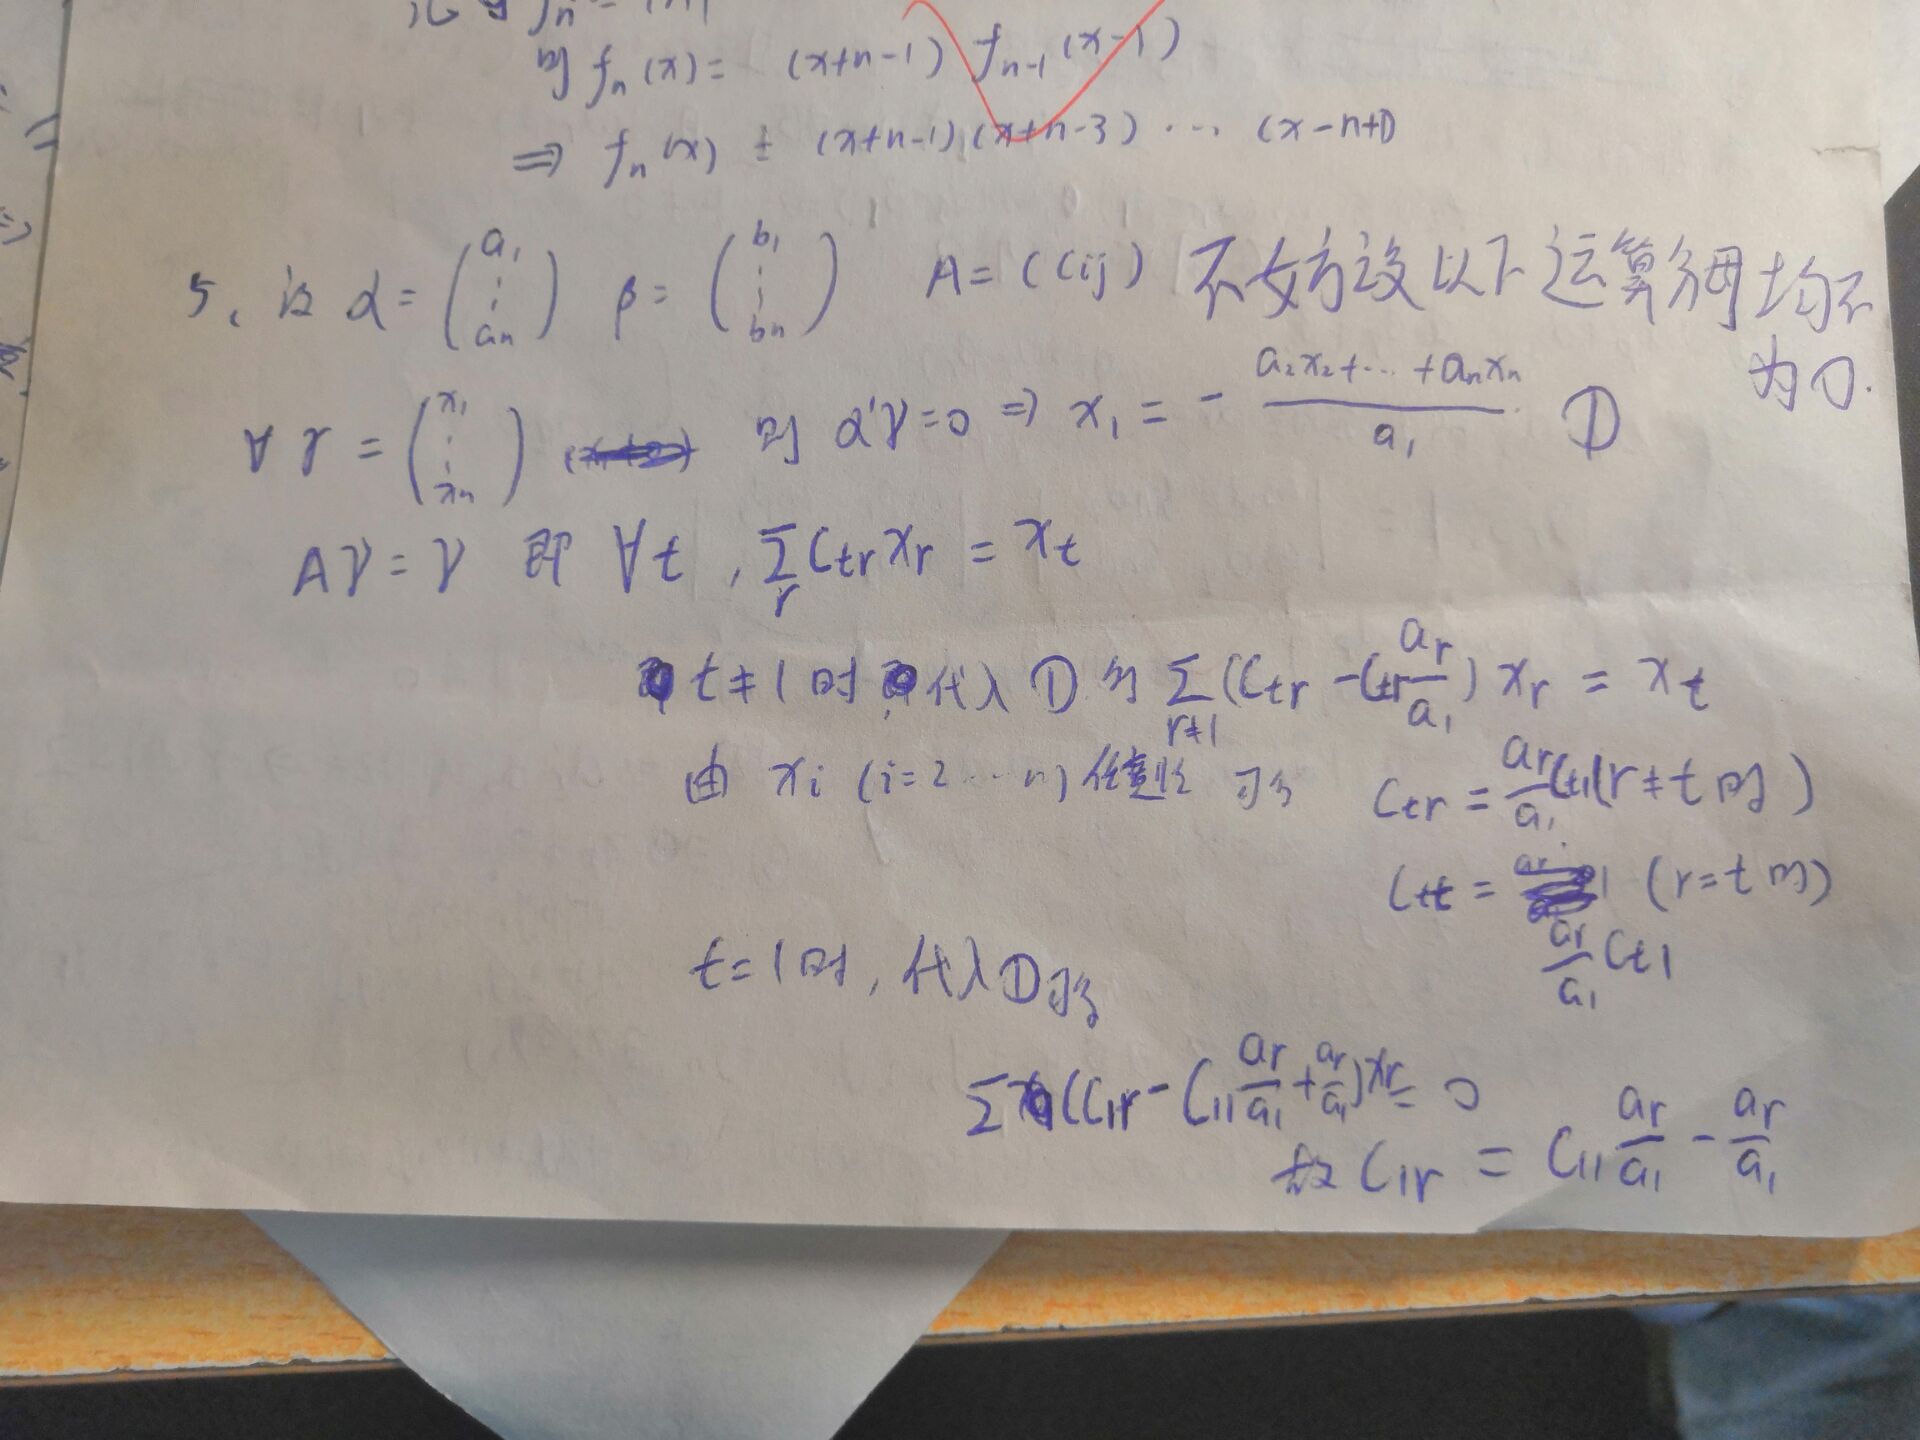 f_n
则 f_n(x) = (x+n-1) f_{n-1}(x-1)
⇒ f_n(x) = (x+n-1)(x+n-3) ... (x-n+1)
5. 设 α = (a_1 ⋮ a_n) β = (b_1 ⋮ b_n) A = (C_{ij}) 不妨设以下运算分母均不
为0.
∀ γ = (x_1 ⋮ x_n) 则 α'γ = 0 ⇒ x_1 = - \frac{a_2x_2+⋯+a_nx_n}{a_1} ①
Aγ = γ 即 ∀t, \sum_r C_{tr} x_r = x_t
t≠1时 代入① 得 \sum_{r≠1} (C_{tr} - C_{tr} \frac{a_r}{a_1}) x_r = x_t
由 x_i (i=2⋯n) 任意性 可得 C_{tr} = \frac{a_r}{a_1} C_{t1} (r≠t时)
C_{tt} = 1 (r=t时)
\frac{a_r}{a_1} C_{t1}
t=1时, 代入①可得
\sum (C_{1r} - C_{11} \frac{a_r}{a_1} + \frac{a_r}{a_1}) x_r = 0
故 C_{1r} = C_{11} \frac{a_r}{a_1} - \frac{a_r}{a_1}